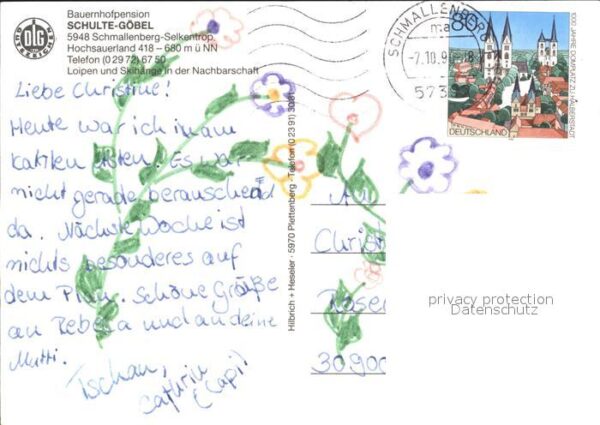 Bauernhofpension
SCHULTE-GÖBEL
5948 Schmallenberg-Selkentrop
Hochsauerland 418 – 680 m ü NN
Telefon (0 29 72) 67 50
Loipen und Skihänge in der Nachbarschaft
DLG
Liebe Christine!
Heute war ich im am
kahlen Asten. Es war
nicht gerade berauschend
da. Nächste Woche ist
nichts besonderes auf
dem Plan. Schöne Grüße
an Rebecca und an deine
Mutti.
Tschau,
Cathrin
(Capi)
Hilbrich + Heseler · 5970 Plettenberg · Telefon (0 23 91)
SCHMALLENBERG
ma
-7.10.9
573
80
DEUTSCHLAND
1000 JAHRE DOMPLATZ ZU HALBERSTADT
An
Christ
Rosen
30900
privacy protection
Datenschutz